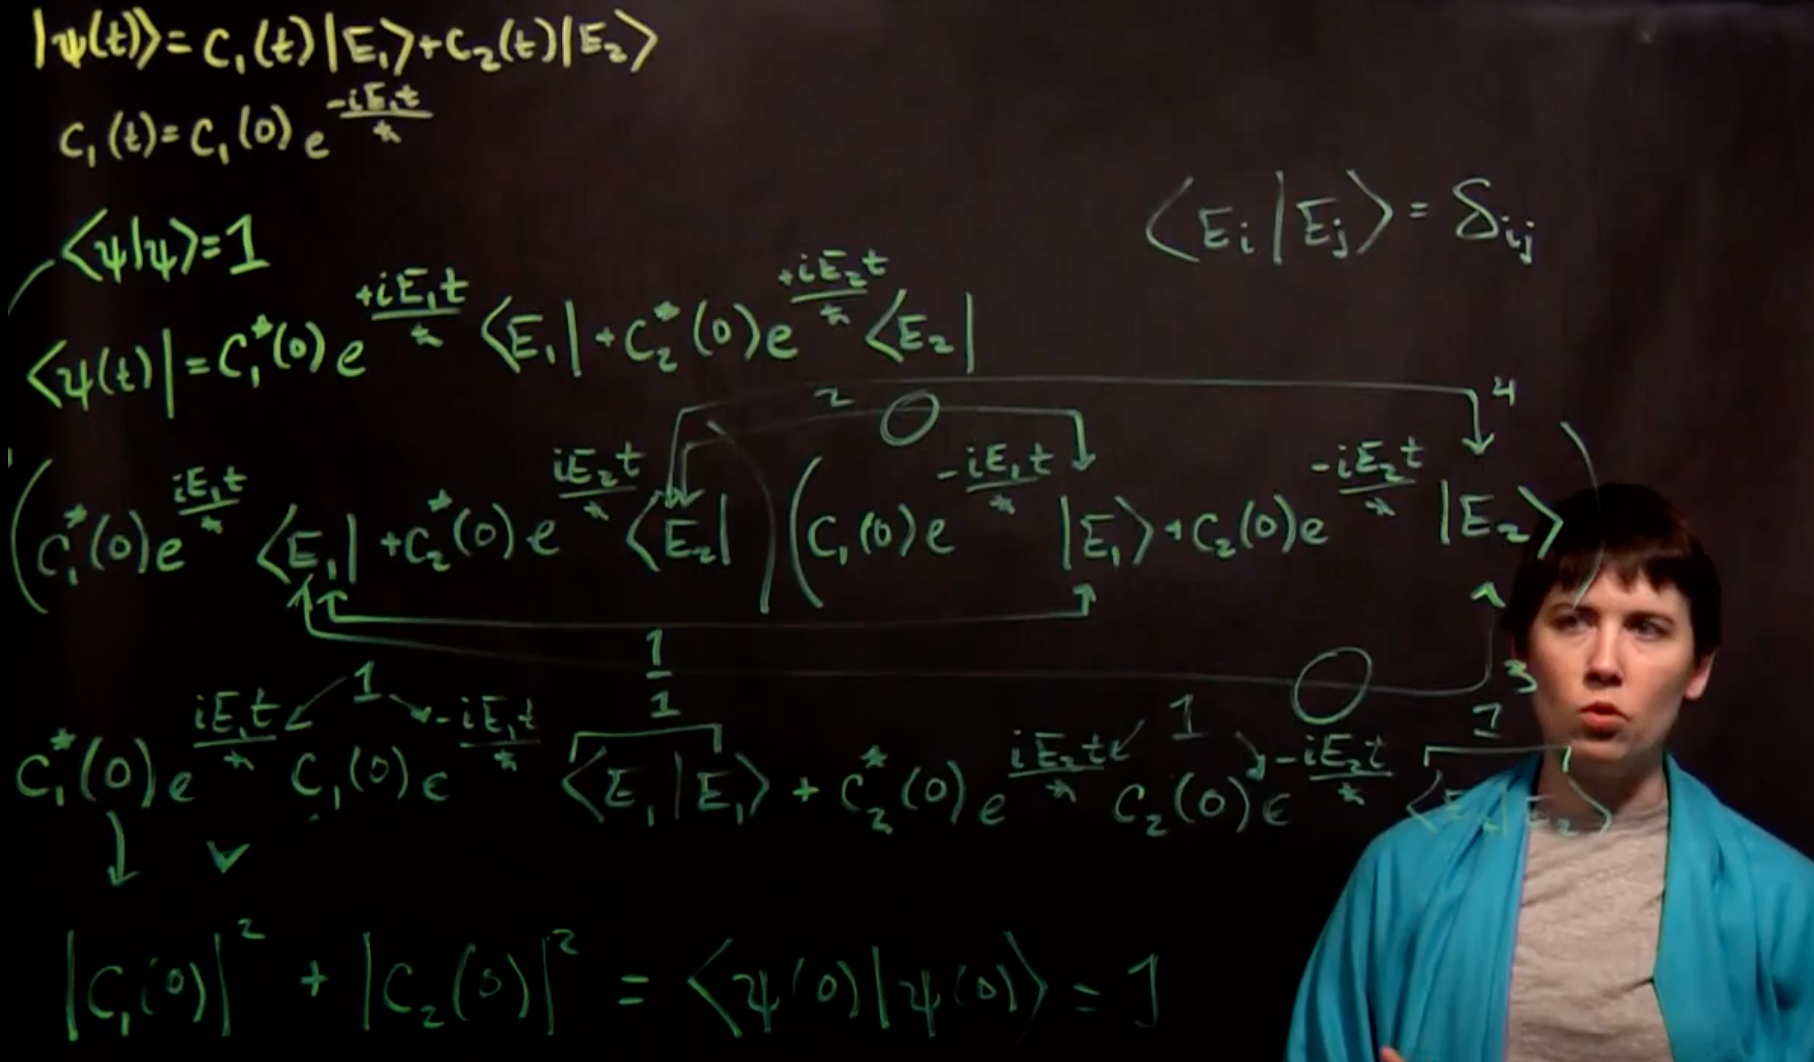 |ψ(t)⟩ = C₁(t)|E₁⟩ + C₂(t)|E₂⟩
C₁(t) = C₁(0) e^(-iE₁t/ħ)
⟨Eᵢ|Eⱼ⟩ = δᵢⱼ
⟨ψ|ψ⟩ = 1
⟨ψ(t)| = C₁*(0) e^(+iE₁t/ħ) ⟨E₁| + C₂*(0) e^(+iE₂t/ħ) ⟨E₂|
2 0 4
(C₁*(0) e^(iE₁t/ħ) ⟨E₁| + C₂*(0) e^(iE₂t/ħ) ⟨E₂|) (C₁(0) e^(-iE₁t/ħ) |E₁⟩ + C₂(0) e^(-iE₂t/ħ) |E₂⟩)
1 0 3
1 1 1 1
C₁*(0) e^(iE₁t/ħ) C₁(0) e^(-iE₁t/ħ) ⟨E₁|E₁⟩ + C₂*(0) e^(iE₂t/ħ) C₂(0) e^(-iE₂t/ħ) ⟨E₂|E₂⟩
|C₁(0)|² + |C₂(0)|² = ⟨ψ(0)|ψ(0)⟩ = 1